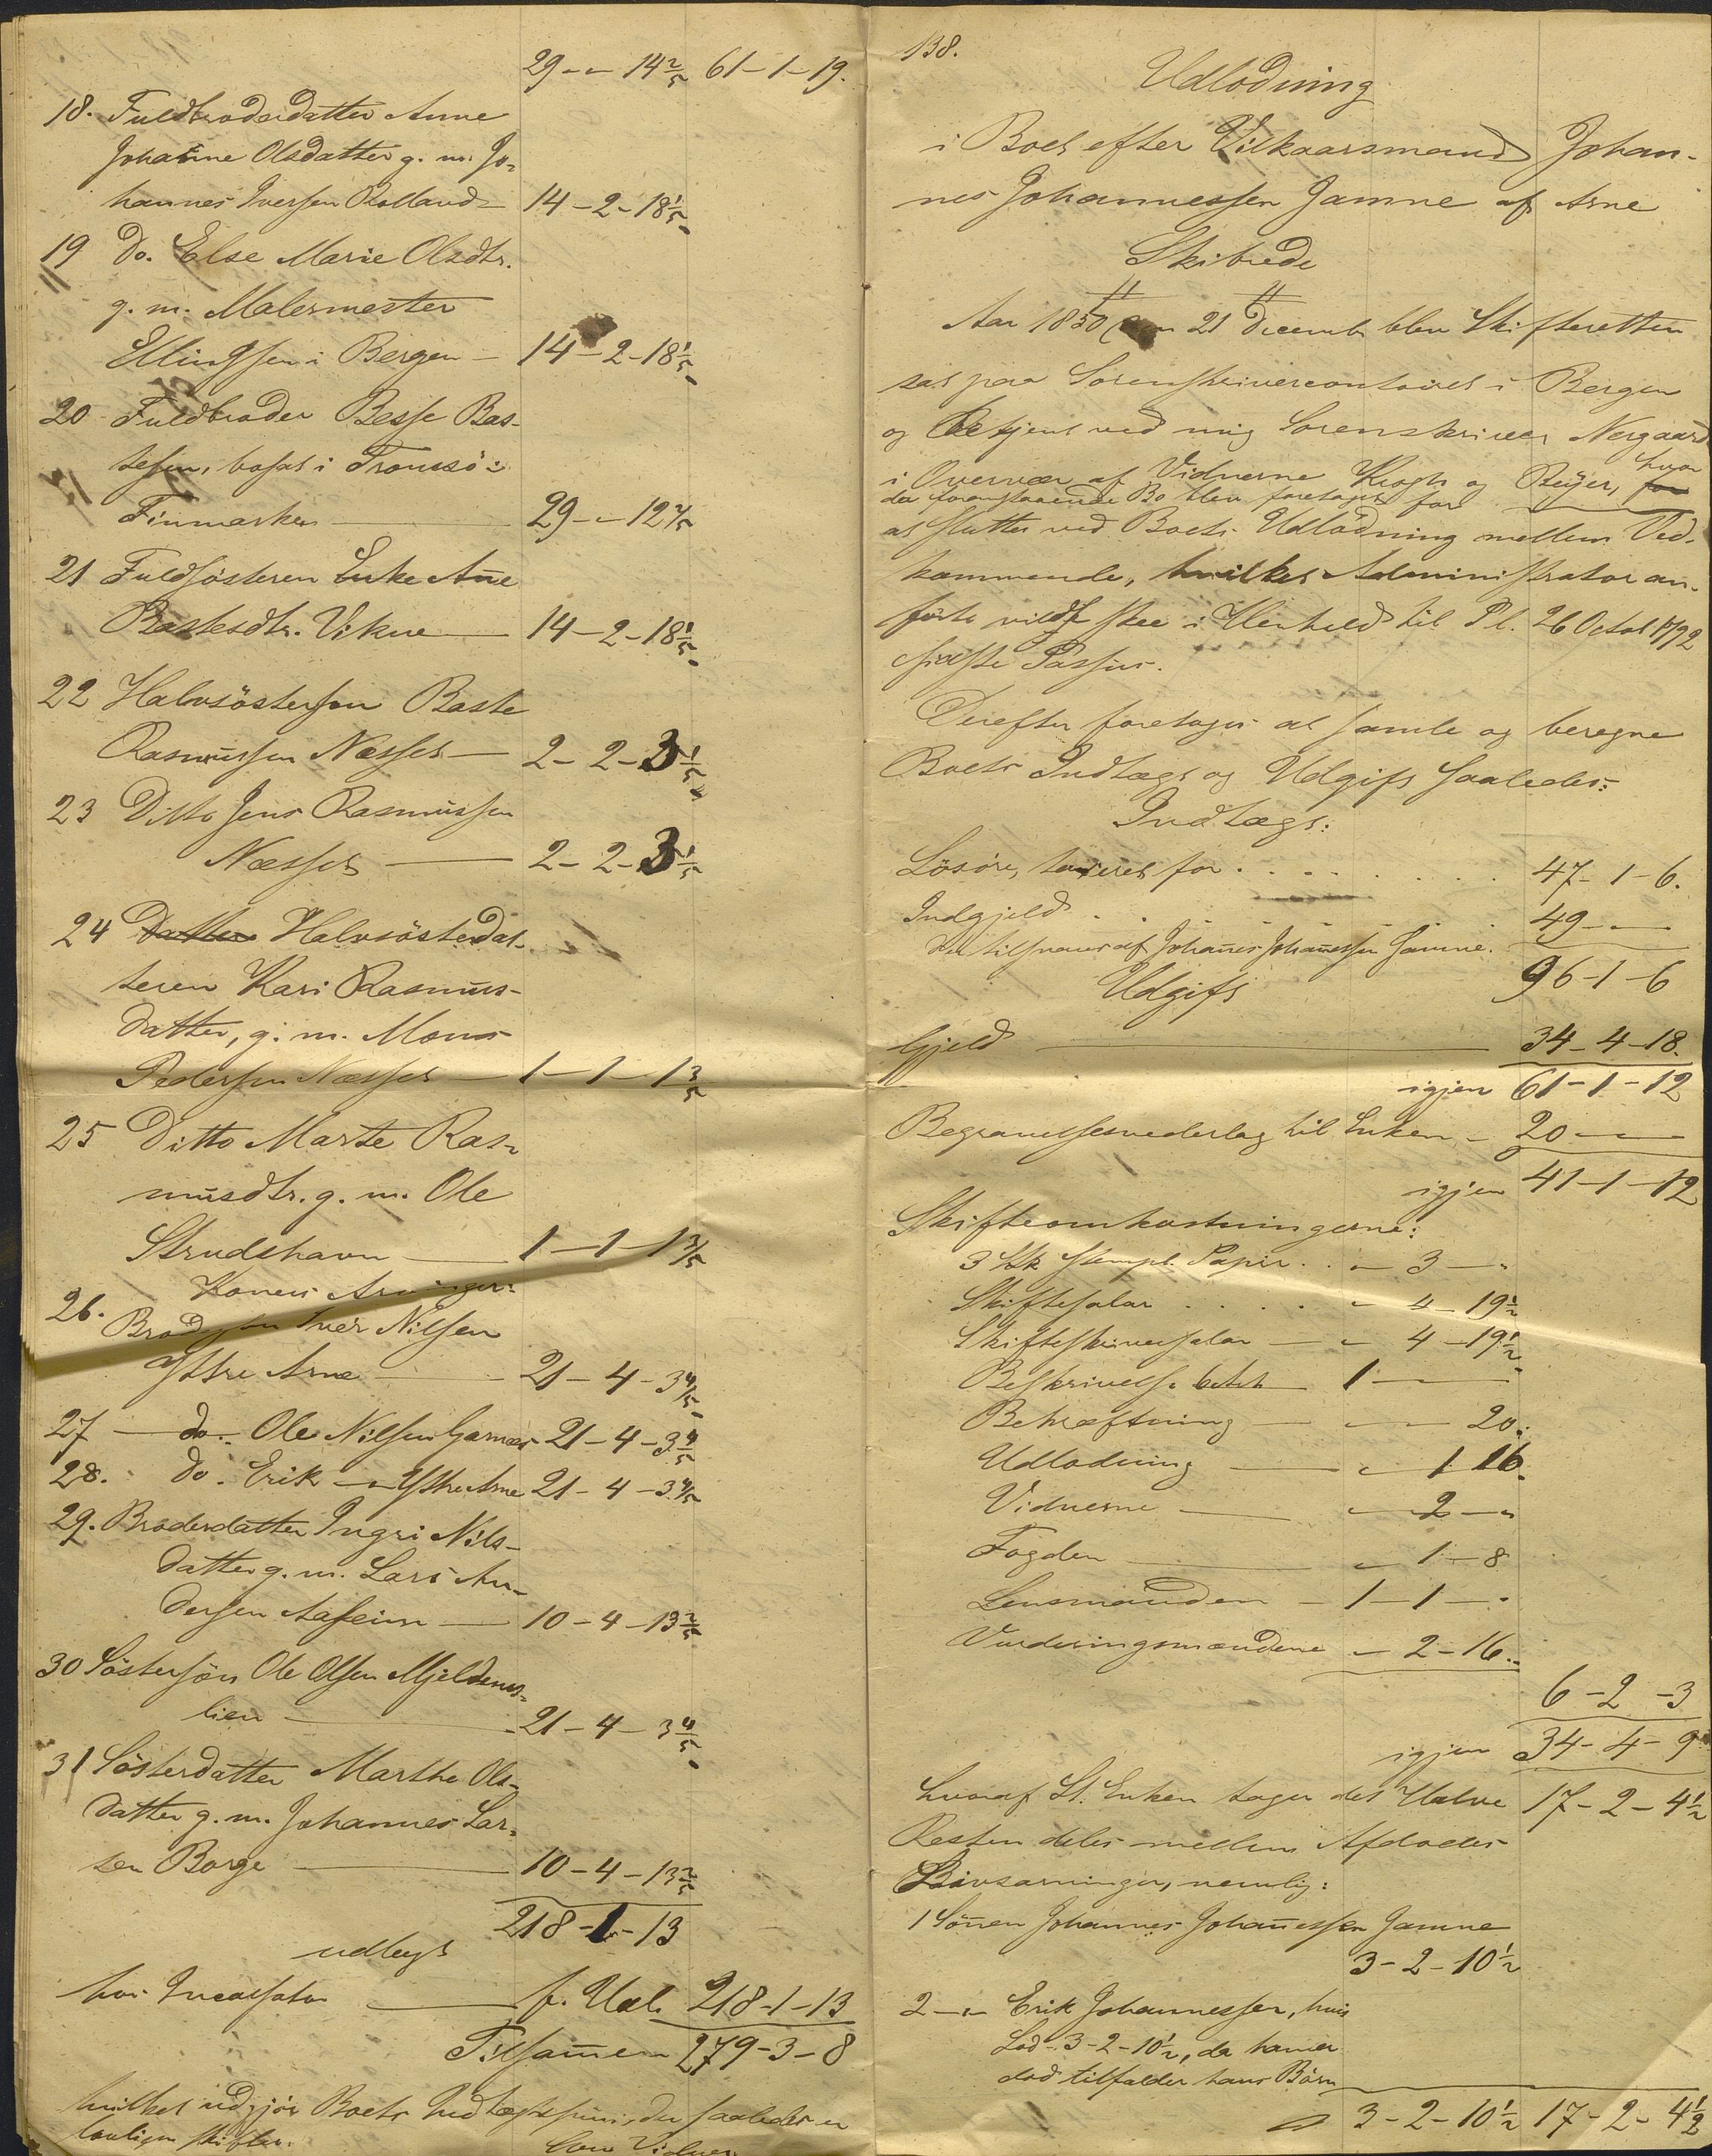 29 - " - 14 2/5 61 - 1 - 19.
18. Fuldbroderdatter Anne
Johanne Olsdatter g. m. Jo-
hannes Iversen Rolland - 14 - 2 - 18 1/5
19 Do. Else Marie Olsdtr.
g. m. Malermester
Ellingsen i Bergen - 14 - 2 - 18 1/5
20 Fuldbroder Besse Bas-
tesen, bosat i Tromsö i
Finmarken 29 - " - 12 2/5
21 Fuldsösteren Enke Añe
Bastesdtr. Vikne 14 - 2 - 18 1/5
22 Halvsöstersön Baste
Rasmussen Næsset - 2 - 2 - 3 1/5
23 Ditto Jens Rasmussen
Næsset 2 - 2 - 3 1/5
24 Datter Halvsösterdat-
teren Kari Rasmus-
datter, g. m. Mons
Pedersen Næsset - 1 - 1 - 1 3/5
25 Ditto Marte Ras-
musdtr. g. m. Ole
Strudshavn 1 - 1 - 1 3/5
Konens Arvinger:
26. Brodersön Iver Nilsen
Ystre Arne 21 - 4 - 3 4/5
27 - do. Ole Nilsen Garnæs 21 - 4 - 3 4/5
28. do. Erik - " - Ystre Arne 21 - 4 - 3 4/5
29. Broderdatter Ingri Nils-
datter g. m. Lars An-
dersen Aaseim 10 - 4 - 13 2/5
30 Söstersön Ole Olsen Mjeldems-
lien 21 - 4 - 3 4/5
31 Sösterdatter Marthe Ols-
datter g. m. Johannes Lar-
sen Borge 10 - 4 - 13 2/5
218 - 1 - 13
udlagt
hos Incassator f. Udl. 218 - 1 - 13
Tilsam̃en 279 - 3 - 8
hvilket udgjör Boets Indtægtssum, der saaledes er
lovligen skiftet. Som Vidner:
138.
Udlodning
i Boet efter Vilkaarsmand Johan-
nes Johannessen Jamne af Arne
Skibrede
Aar 1850 den 21 Decemb. blev Skifteretten
sat paa Sorenskrivercontoiret i Bergen
og betjent ved mig Sorenskriver Nergaard
i Overvær af Vidnerne Krogh og Beyer, for hvor
da foranstaaende Bo blev foretaget for
at sluttes ved Boets Udlodning mellem Ved-
kommende, hvilket Administrator an-
förte vilde skee i Henhold til Pl. 26 Octob 1792
sidste Passus.
Derefter foretoges at samle og beregne
Boets Indtægt og Udgift saaledes:
Indtægt:
Lösöre, taxeret for . . . . . . . 47 - 1 - 6.
Indgjeld . . . . . . 49 - " -
der tilsvares af Johañes Johañessen Jamne.
96 - 1 - 6
Udgift
Gjeld 34 - 4 - 18.
igjen 61 - 1 - 12
Begravelsesvederlag til Enken - 20 - " -
igjen 41 - 1 - 12
Skifteomkostningerne:
3 Stk Stempl. Papir . . " - 3 - "
Skiftesalar . . . . . " 4 - 19 1/2
Skifteskriversalar - " 4 - 19 1/2
Beskrivelse betalt 1 - "
Bekræftning - " - 20.
Udlodning " 1 16.
Vidnerne " - 2 - "
Fogden " - 1 - 8
Lensmanden - 1 - 1 - "
Vurderingsmændene " - 2 - 16.
6 - 2 - 3
igjen 34 - 4 - 9
hvoraf St. Enken tager det Halve 17 - 2 - 4 1/2
Resten deles mellem Afdödes
Livsarvinger, nemlig:
1 Sönnen Johannes Johañessen Jamne
3 - 2 - 10 1/2
2 - " - Erik Johannessen, hvis
Lod - 3 - 2 - 10 1/2, da han er
död tilfalder hans Börn
3 - 2 - 10 1/2 17 - 2 - 4 1/2